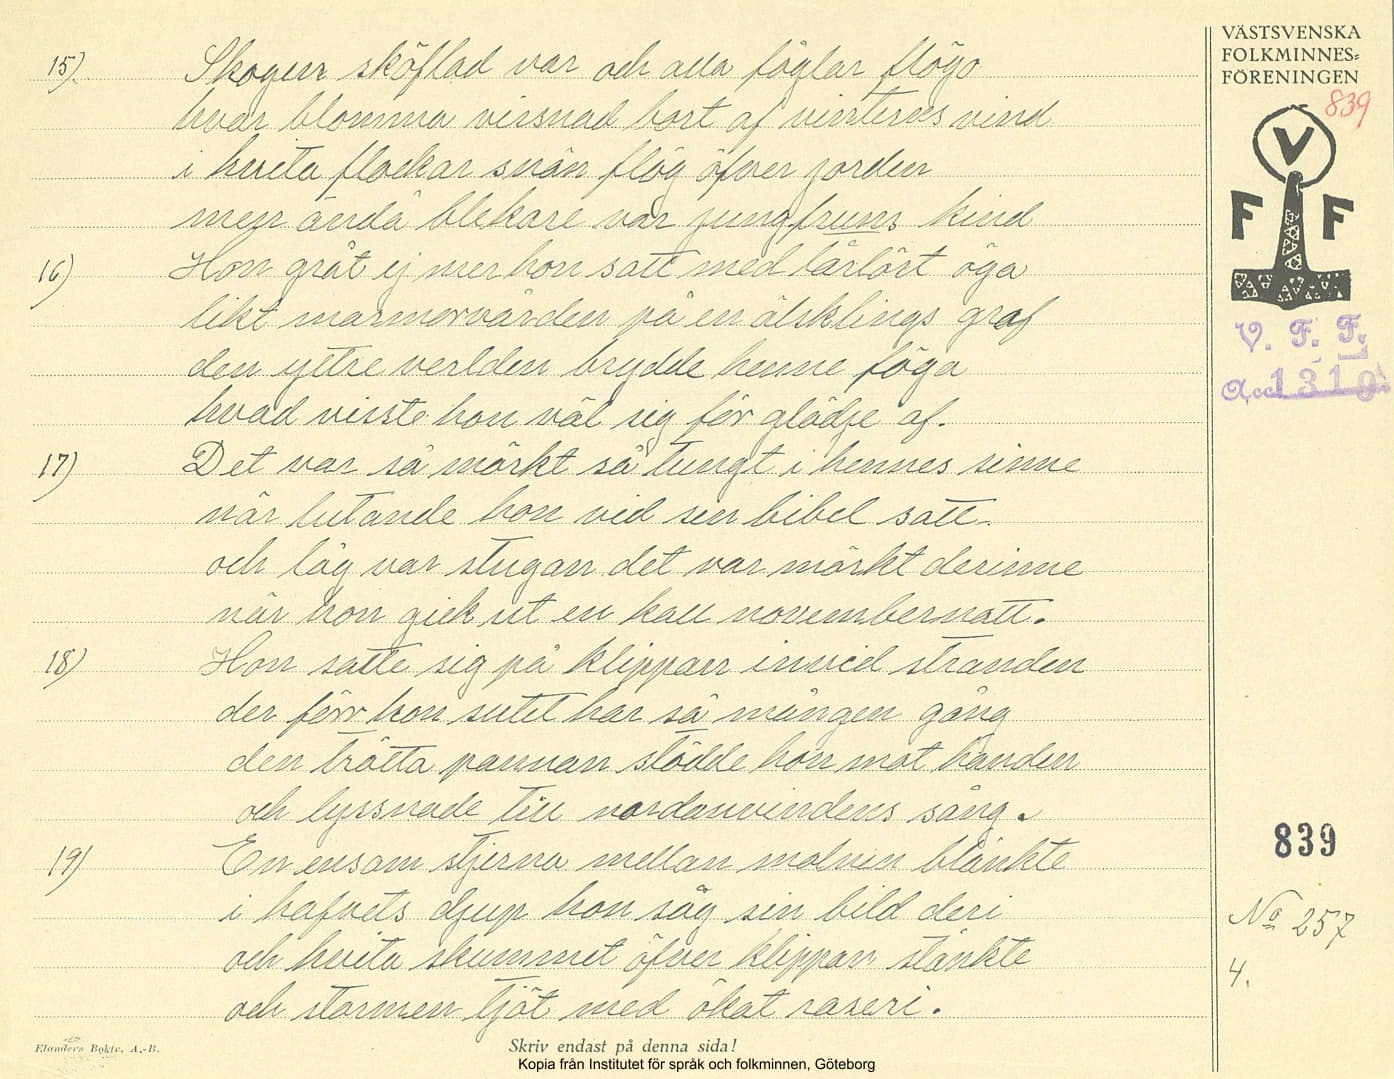 VÄSTSVENSKA
FOLKMINNES-
FÖRENINGEN
839
V
F F
V. F. F.
Acc 1319
15) Skogen sköflad var och alla foglar flögo
hvar blomma vissnad bort af vinterns vind
i hvita flockar snön flög öfver jorden
men ändå blekare var jungfruns kind
16) Hon grät ej mer hon satt med tårlöst öga
likt marmorvården på en älsklings graf
den yttre verlden brydde henne föga
hvad visste hon väl sig för glädje af.
17) Det var så mörkt så tungt i hennes sinne
när lutande hon vid sin bibel satt
och låg var stugan det var mörkt derinne
när hon gick ut en kall novembernatt.
18) Hon satte sig på klippan invid stranden
der förr hon sutit har så mången gång
den trötta pannan stödde hon mot handen
och lyssnade till nordanvindens sång.
19) En ensam stjerna mellan molnen blänkte
i hafvets djup hon såg sin bild deri
och hvita skummet öfver klippan stänkte
och stormen tjöt med ökat raseri.
839
No 257
4.
Elanders Boktr. A.-B.
Skriv endast på denna sida!
Kopia från Institutet för språk och folkminnen, Göteborg